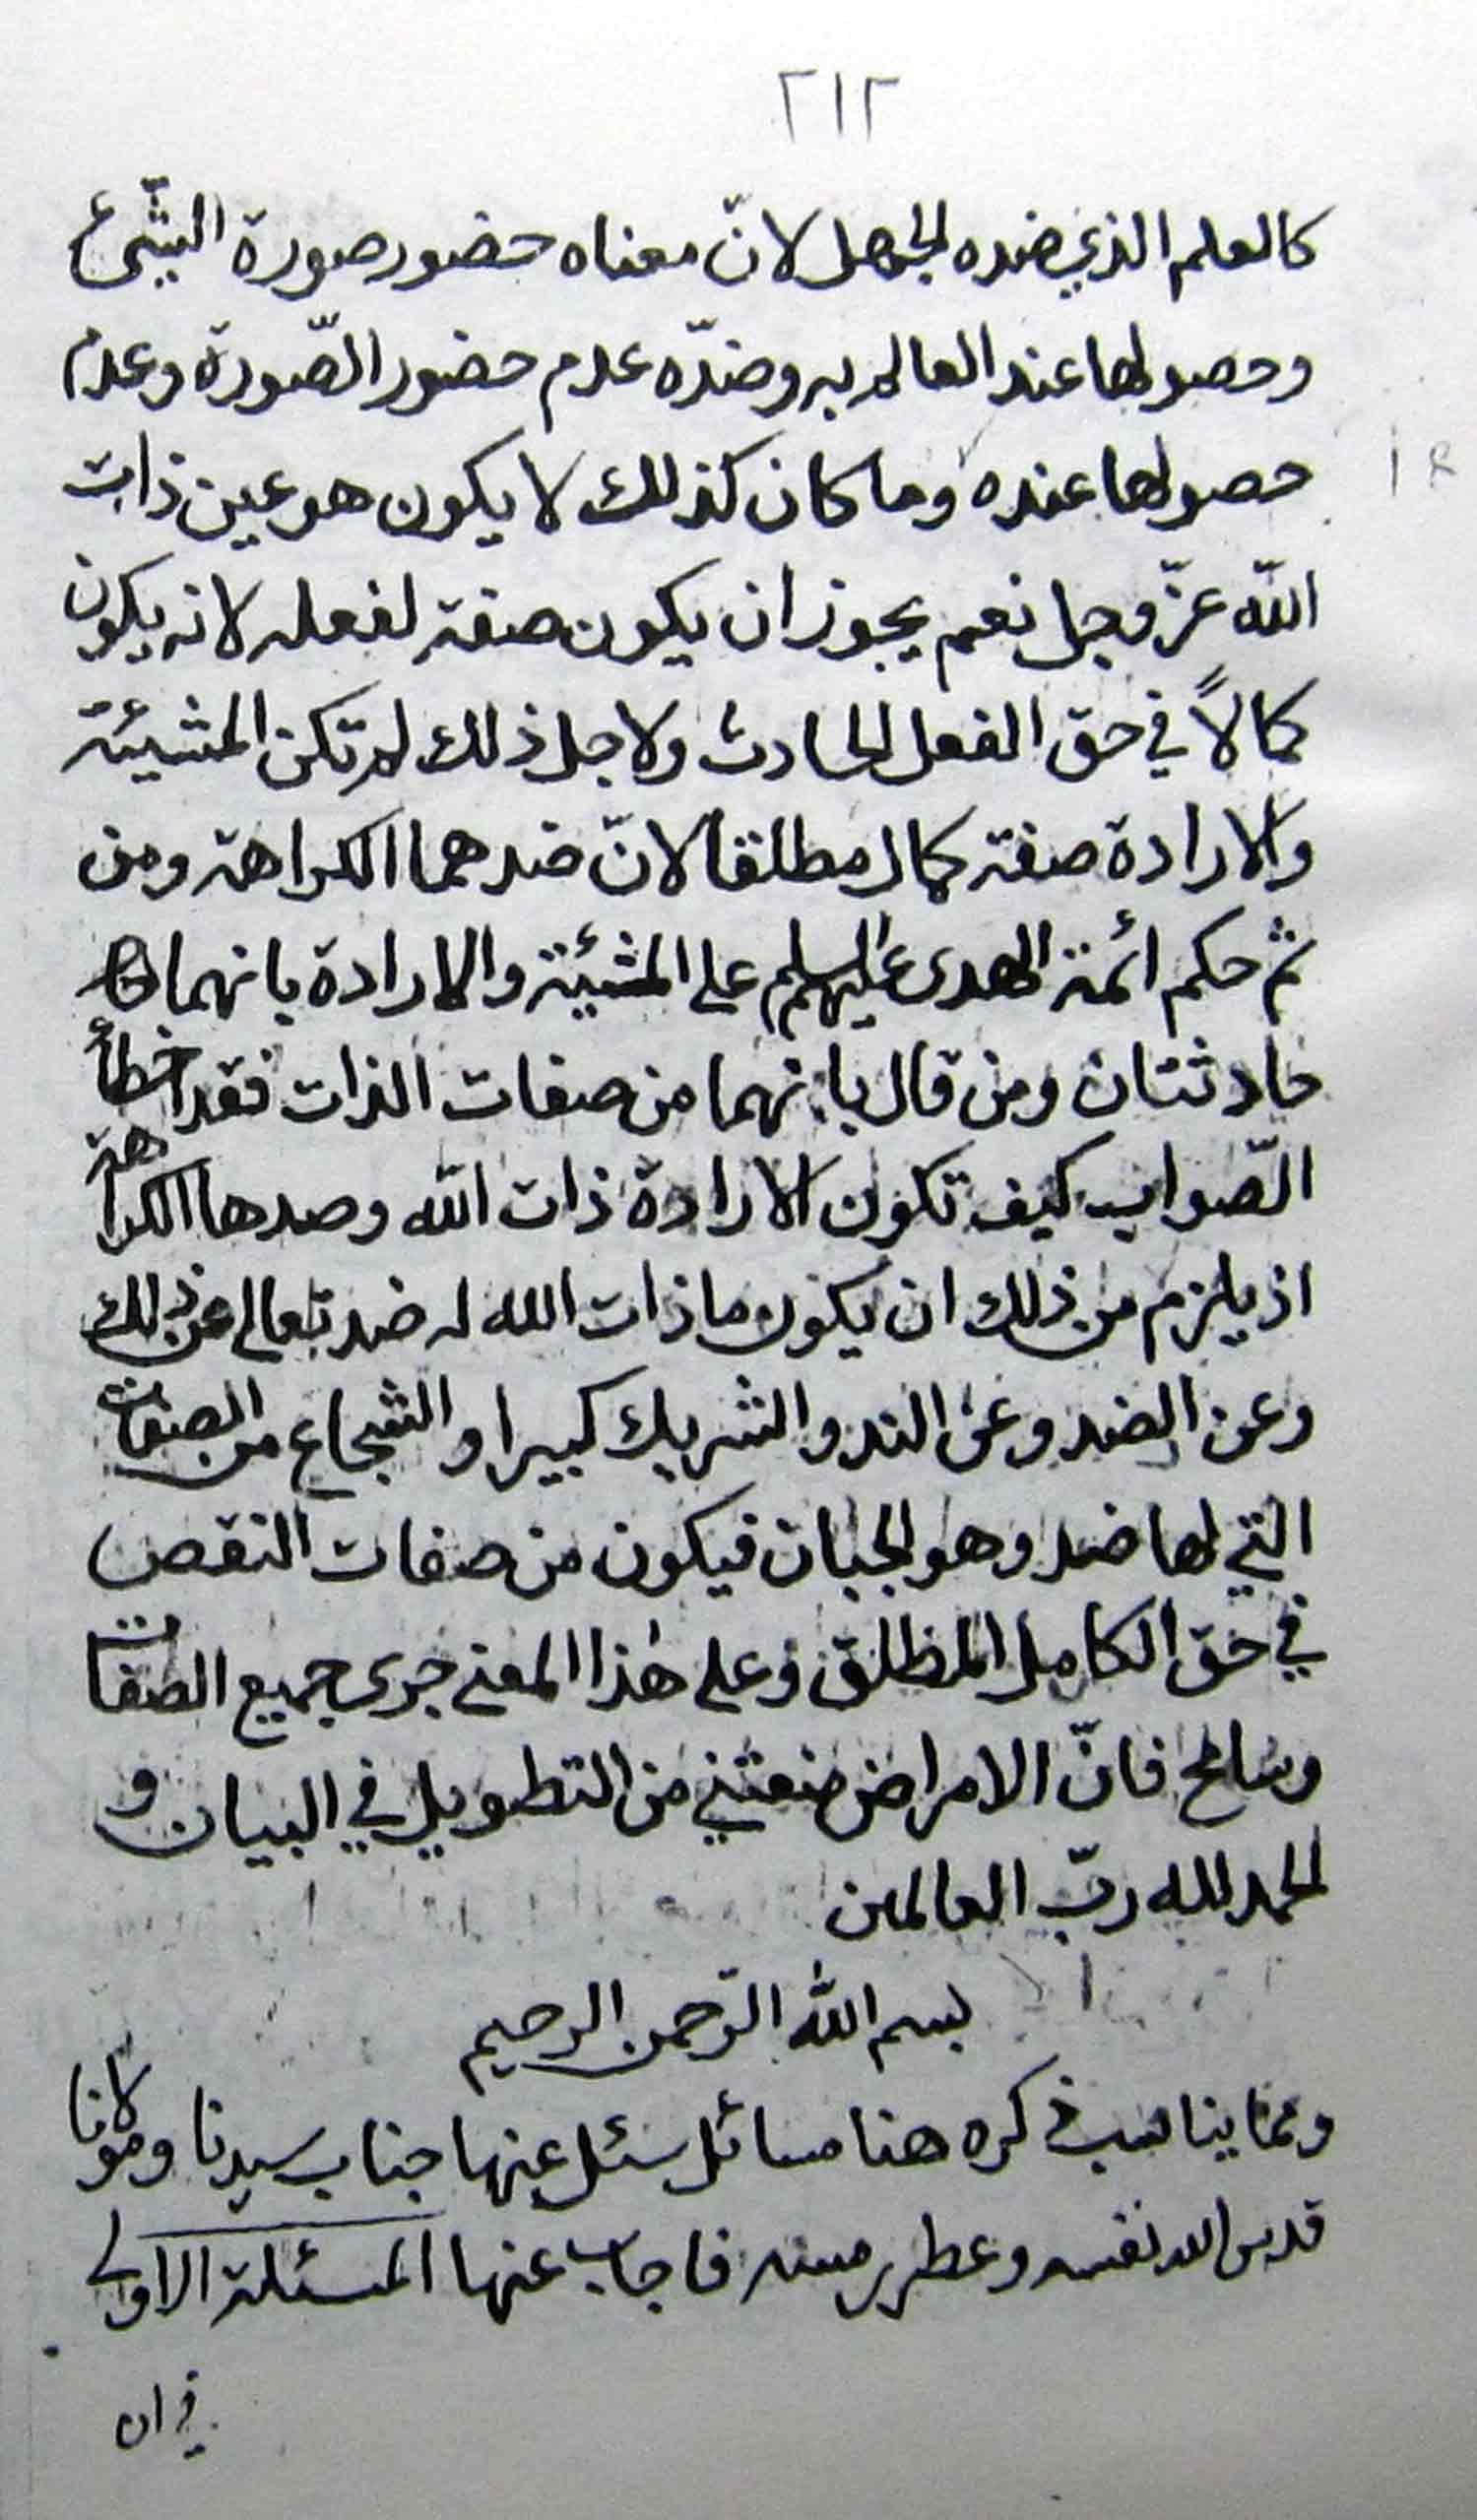 ٢١٢
كالعلم الذي ضده الجهل لانّ معناه حضور صورة الشّیء
وحصولها عند العالم به وضدّه عدم حضور الصّورة وعدم
حصولها عنده وما كان كذلك لا يكون هو عين ذات
اللّه عزّ وجل نعم يجوز ان يكون صفة لفعله لانه يكون
كمالاً في حق الفعل الحادث ولاجل ذلك لم تكن المشيئة
والارادة صفة كمال مطلقا لانّ ضدهما الكراهة ومن
ثم حكم ائمة الهدى عليهم السلم على المشيئة والارادة بانهما
حادثتان ومن قال بانهما من صفات الذات فقد اخطأ
الصّواب كيف تكون الارادة ذات اللّه وضدها الكراهة
اذ يلزم من ذلك ان يكون ما ذات الله له ضد تعالى عن ذلك
وعن الضد وعن الند والشريك كبيرا والشجاع من الصفات
التي لها ضد وهو الجبان فيكون من صفات النقص
في حق الكامل المطلق وعلى هٰذا المعنى جرى جميع الصفات
وسامح فانّ الامراض منعتني من التطويل في البيان و
الحمد لله ربّ العالمين
بسم اللّه الرّحمن الرحيم
ومما يناسب ذكره هنا مسائل سئل عنها جناب سيدنا ومولانا
قدس الله نفسه وعطر رمسه فاجاب عنها المسئلة الاولى
في ان